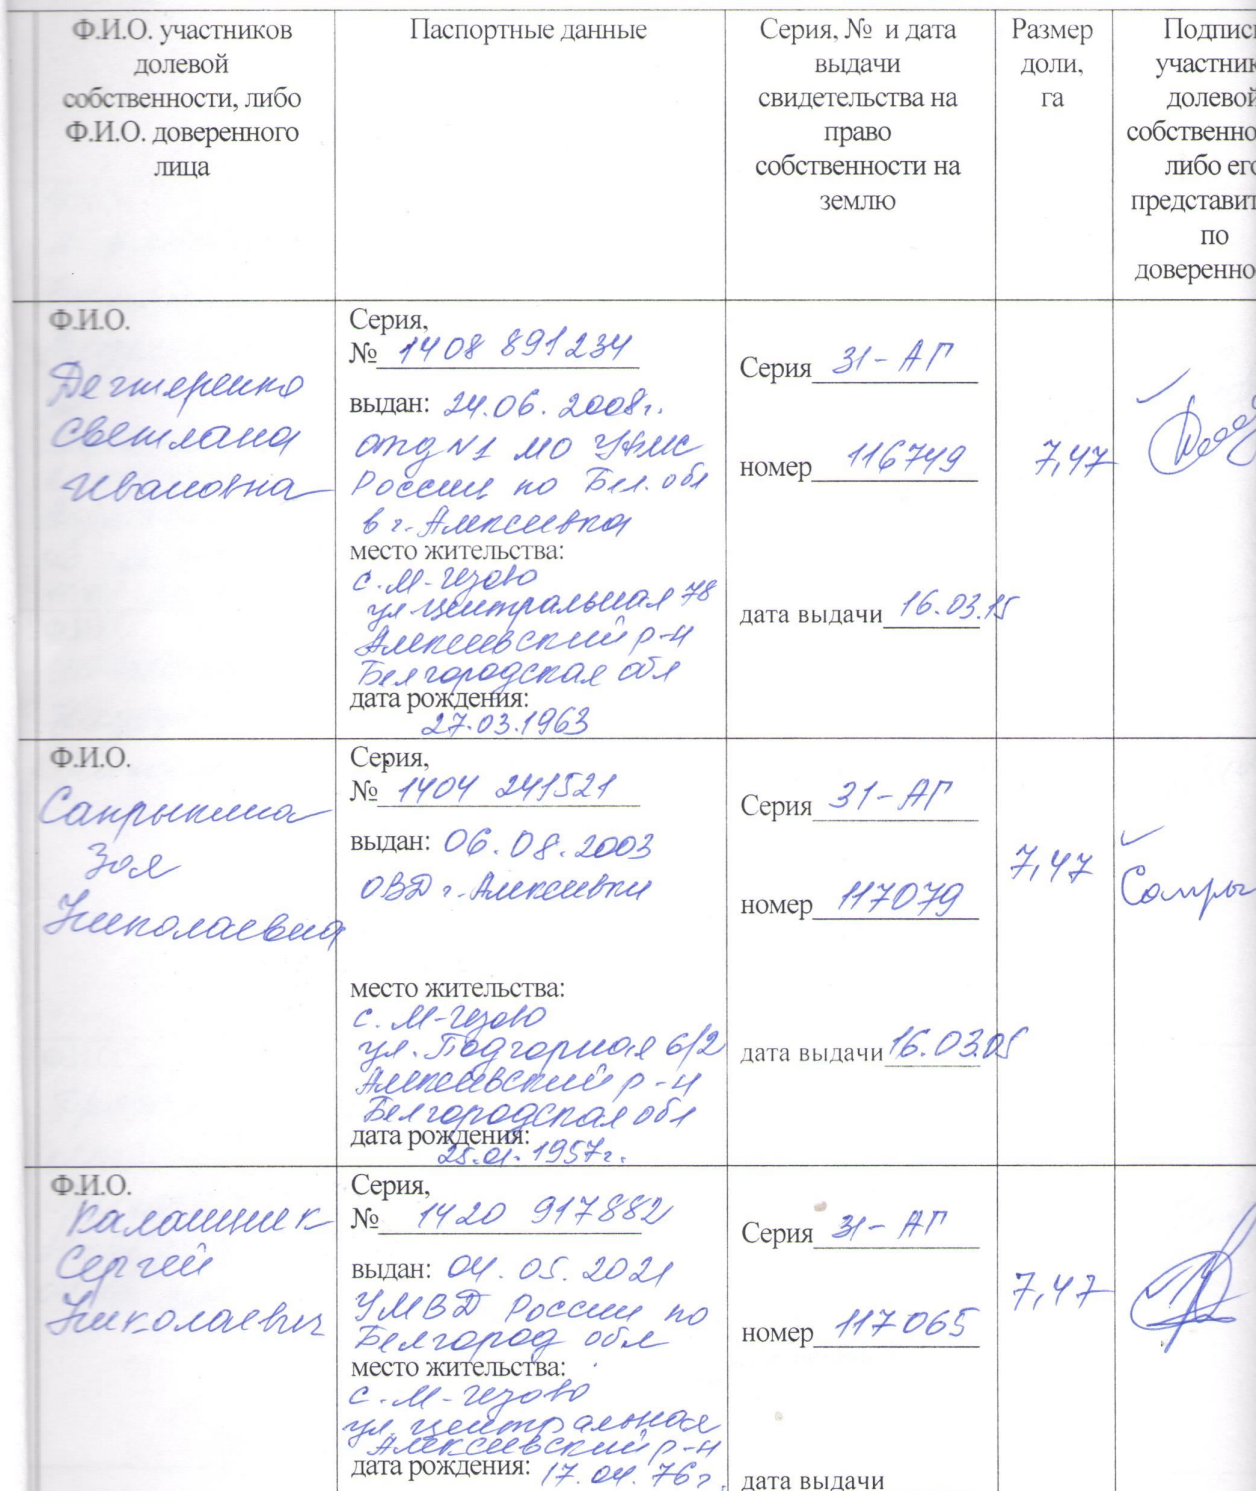 Ф.И.О. участников
долевой
собственности, либо
Ф.И.О. доверенного
лица
Паспортные данные
Серия, № и дата
выдачи
свидетельства на
право
собственности на
землю
Размер
доли,
га
Подпис
участник
долевой
собственно
либо его
представит
по
доверенно
Ф.И.О.
Дегтеренко
Светлана
Ивановна
Серия,
№ 1408 891234
выдан: 24.06.2008г.
отд №1 МО УФМС
России по Бел. обл
в г. Алексеевка
место жительства:
с. М-Гезово
ул Центральная 78
Алексеевский р-н
Белгородская обл
дата рождения:
27.03.1963
Серия 31-АГ
номер 116749
дата выдачи 16.03.15
7,47
Ф.И.О.
Сапрыкина
Зоя
Николаевна
Серия,
№ 1404 241521
выдан: 06.08.2003
ОВД г. Алексеевки
место жительства:
с. М-Гезово
ул. Подгорная 6/2
Алексеевский р-н
Белгородская обл
дата рождения:
25.01.1957г.
Серия 31-АГ
номер 117079
дата выдачи 16.03.05
7,47
Сапры
Ф.И.О.
Калашник
Сергей
Николаевич
Серия,
№ 1420 917882
выдан: 04.05.2021
УМВД России по
Белгород обл
место жительства:
с. М-Гезово
ул Центральная
Алексеевский р-н
дата рождения: 17.04.76г.
Серия 31-АГ
номер 117065
дата выдачи
7,47